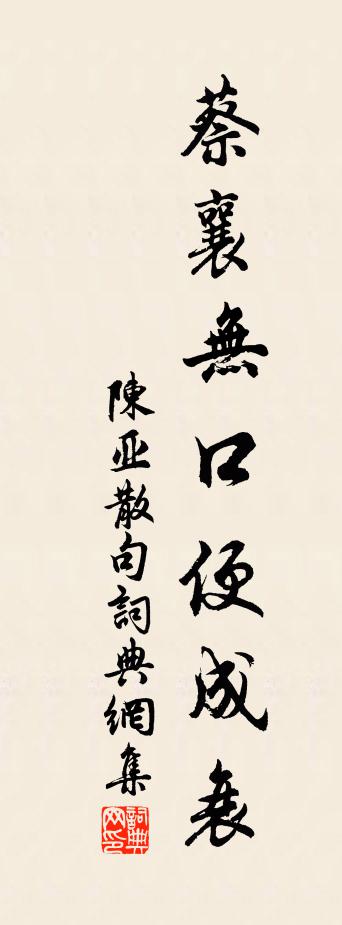 蔡襄無口便成衰
陳亚散句詞典網集
詞典网印